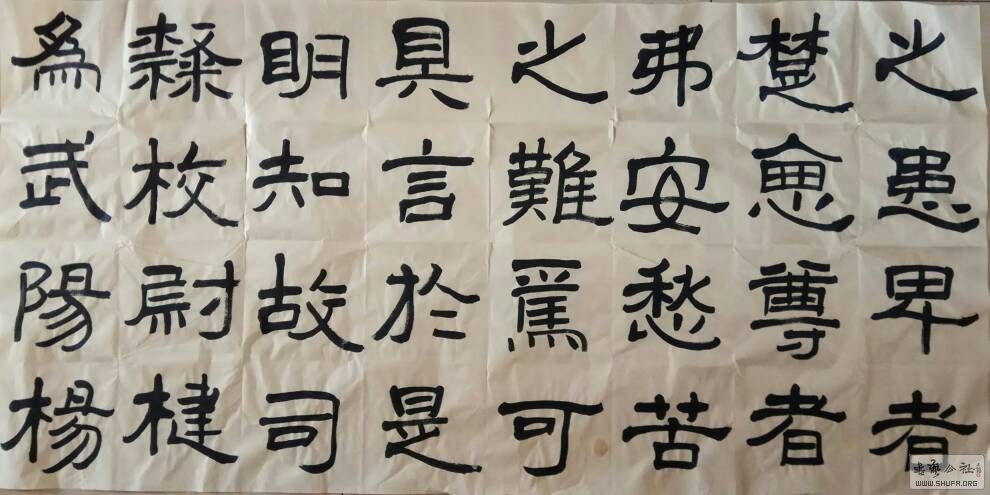 之患卑者
楚惡尊者
弗安愁苦
之難焉可
具言於是
明知故司
隸校尉楗
為武陽楊
書藝公社
WWW.SHUFA.ORG